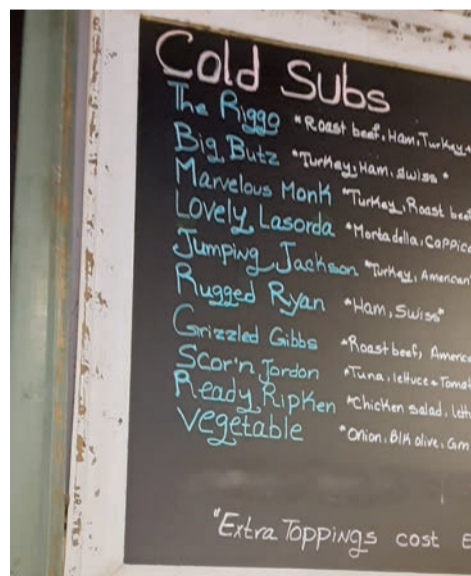 Cold Subs
The Riggo *Roast beef, Ham, Turkey
Big Butz *Turkey, Ham, Swiss*
Marvelous Monk *Turkey, Roast bee
Lovely Lasorda *Mortadella, Cappico
Jumping Jackson *Turkey, American
Rugged Ryan *Ham, Swiss*
Grizzled Gibbs *Roast beef, Americ
Scor'n Jordon *Tuna, lettuce + Tomat
Ready Ripken *Chicken salad, lett
Vegetable *Onion, Blk olive, Grn
*Extra Toppings cost E